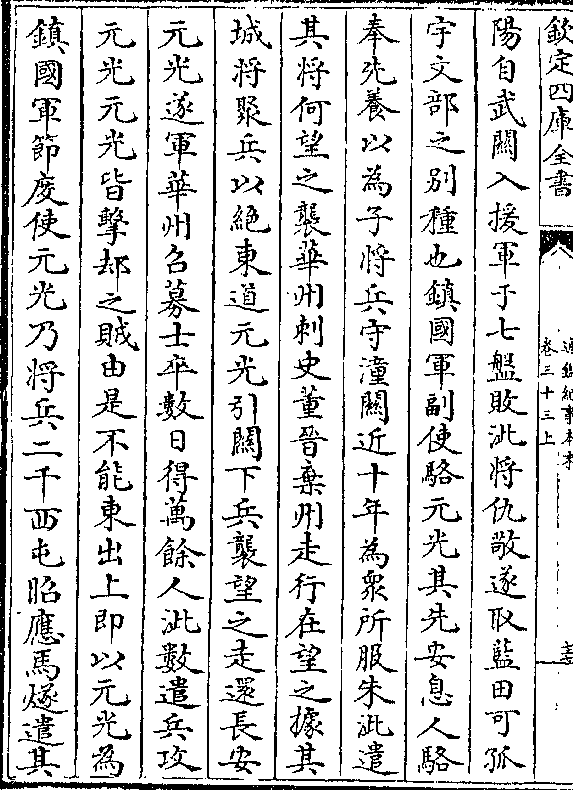 欽定四庫全書
通鑑紀事本末
卷三十三上
陽自武關入援軍于七盤敗泚將仇敬遂取藍田可孤
宇文部之別種也鎮國軍副使駱元光其先安息人駱
奉先養以為子將兵守潼關近十年為衆所服朱泚遣
其將何望之襲華州刺史董晉棄州走行在望之據其
城将聚兵以絶東道元光引關下兵襲望之走還長安
元光遂軍華州召募士卒數日得萬餘人泚數遣兵攻
元光元光皆擊却之賊由是不能東出上即以元光為
鎮國軍節度使元光乃將兵二千西屯昭應馬燧遣其